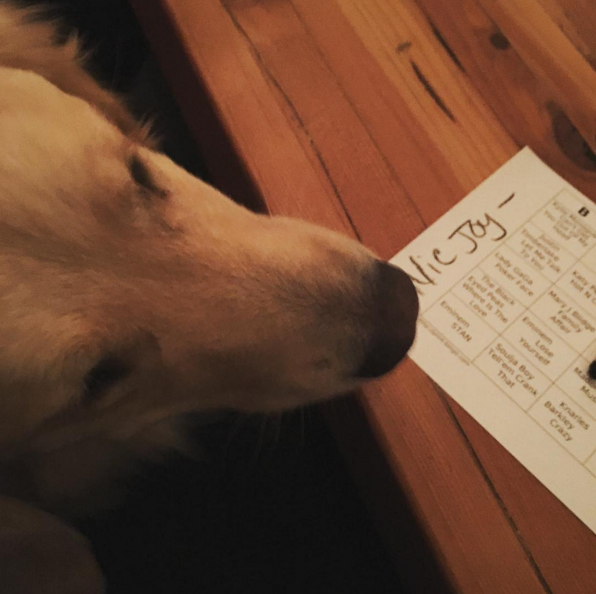 Vic Joy -
B
Justin
Timberlake
Let Me Talk
To You
Lady Gaga
Poker Face
The Black
Eyed Peas
Where Is The
Love
Eminem
STAN
Katy
Hot N C
Mary J Blige
Family
Affair
Eminem
Lose
Yourself
Soulja Boy
Tell'em Crank
That
Knarles
Barkley
Crazy